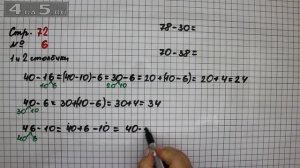 Стр. 72
№ 6
1 и 2 столбики
78-30=
70-38=
40-16=(40-10)-6=30-6=20+(10-6)=20+4=24
10 6 20 10
40-6=30+(10-6)=30+4=34
30 10
46-10=40+6-10=40-